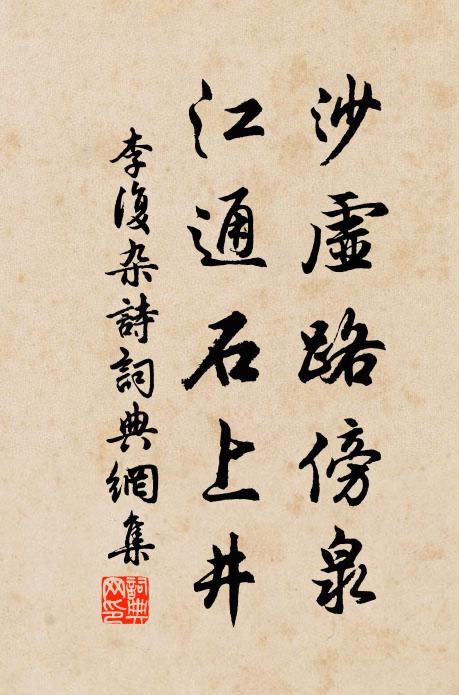 沙虛路傍泉
江通石上井
李復杂詩詞典網集
詞典網印